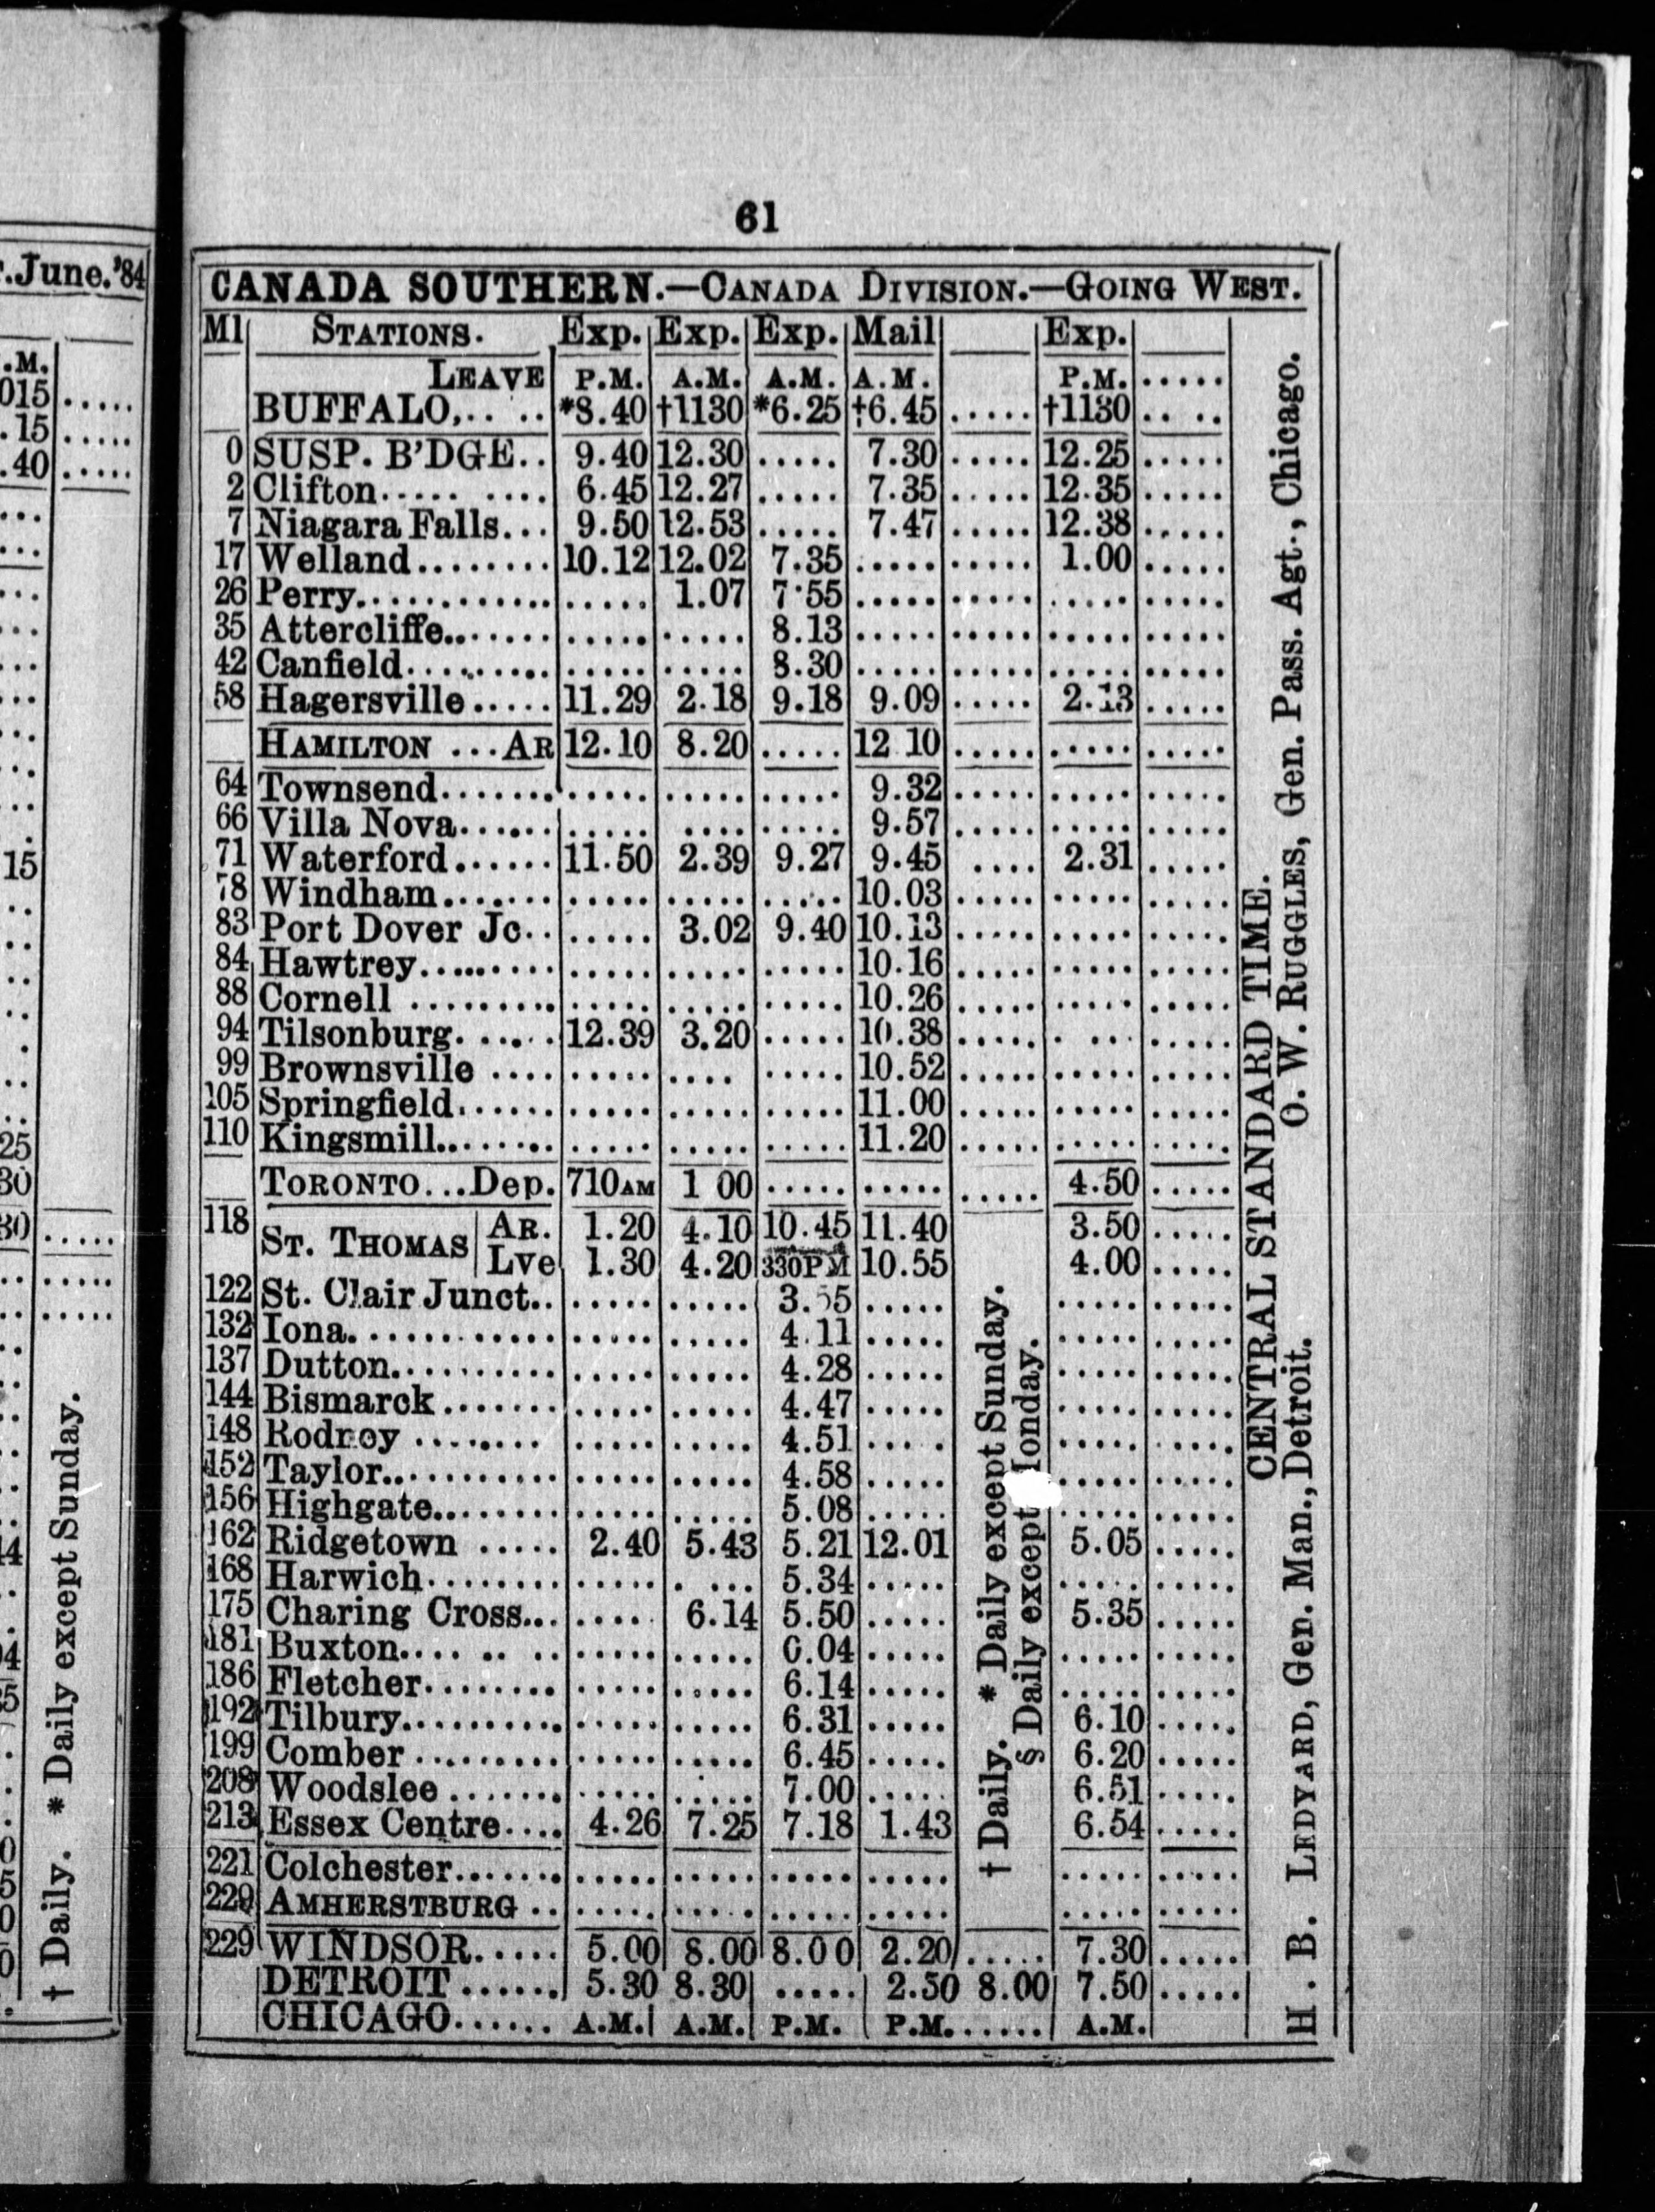 r. June. '84
.M.
015 .....
.15 .....
.40 .....
15
25
30
30 .....
† Daily. * Daily except Sunday.
61
CANADA SOUTHERN.—CANADA DIVISION.—GOING WEST.
Ml STATIONS. Exp. Exp. Exp. Mail Exp.
LEAVE P.M. A.M. A.M. A.M. P.M. .....
BUFFALO,.. .. *8.40 †1130 *6.25 †6.45 ..... †1130 .. ..
0 SUSP. B'DGE.. 9.40 12.30 ..... 7.30 ..... 12.25 .....
2 Clifton..... .... 6.45 12.27 ..... 7.35 ..... 12.35 .....
7 Niagara Falls... 9.50 12.53 ..... 7.47 ..... 12.38 .....
17 Welland........ 10.12 12.02 7.35 ..... ..... 1.00 .....
26 Perry............. ..... 1.07 7.55 ..... ..... ..... .....
35 Attercliffe......... ..... ..... 8.13 ..... ..... ..... .....
42 Canfield........... ..... ..... 8.30 ..... ..... ..... .....
58 Hagersville..... 11.29 2.18 9.18 9.09 ..... 2.13 .....
HAMILTON ...AR 12.10 8.20 ..... 12 10 ..... ..... .....
64 Townsend........ ..... ..... ..... 9.32 ..... ..... .....
66 Villa Nova...... ..... .... ..... 9.57 ..... ..... .....
71 Waterford...... 11.50 2.39 9.27 9.45 .... 2.31 .....
78 Windham........ ..... ..... ..... 10.03 ..... ..... .....
83 Port Dover Jc.. ..... 3.02 9.40 10.13 ..... ..... .....
84 Hawtrey.......... ..... ..... ..... 10.16 ..... ..... .....
88 Cornell .......... ..... ..... ..... 10.26 ..... ..... .....
94 Tilsonburg. ..... 12.39 3.20 ..... 10.38 ..... . ... .....
99 Brownsville .... ..... .... ..... 10.52 ..... ..... .....
105 Springfield....... ..... ..... ..... 11.00 ..... ..... .....
110 Kingsmill......... ..... ..... ..... 11.20 ..... ..... .....
TORONTO...Dep. 710AM 1 00 ..... ..... ..... 4.50 .....
118 ST. THOMAS AR. 1.20 4.10 10.45 11.40 3.50 .....
Lve 1.30 4.20 330PM 10.55 4.00 .....
122 St. Clair Junct.. ..... ..... 3.55 ..... ..... .....
132 Iona. ............ ..... ..... 4.11 ..... ..... .....
137 Dutton........... ..... ..... 4.28 ..... ..... .....
144 Bismarck ....... ..... ..... 4.47 ..... ..... .....
148 Rodney ........ ..... ..... 4.51 ..... ..... .....
152 Taylor............ ..... ..... 4.58 ..... ..... .....
156 Highgate......... ..... ..... 5.08 ..... ..... .....
162 Ridgetown ..... 2.40 5.43 5.21 12.01 5.05 .....
168 Harwich......... ..... . ... 5.34 ..... ..... .....
175 Charing Cross... ..... 6.14 5.50 ..... 5.35 .....
181 Buxton.... .. .. ..... ..... 6.04 ..... ..... .....
186 Fletcher......... ..... ..... 6.14 ..... ..... .....
192 Tilbury........... ..... ..... 6.31 ..... 6.10 .....
199 Comber .......... ..... ..... 6.45 ..... 6.20 .....
208 Woodslee ........ ..... ..... 7.00 ..... 6.51 .....
213 Essex Centre.... 4.26 7.25 7.18 1.43 6.54 .....
221 Colchester........ ..... ..... ..... ..... ..... .....
229 AMHERSTBURG .. ..... ..... ..... ..... ..... .....
229 WINDSOR..... 5.00 8.00 8.00 2.20 ..... 7.30 .....
DETROIT ...... 5.30 8.30 ..... 2.50 8.00 7.50 .....
CHICAGO...... A.M. A.M. P.M. P.M....... A.M.
† Daily. * Daily except Sunday.
§ Daily except onday.
CENTRAL STANDARD TIME.
H. B. LEDYARD, Gen. Man., Detroit. O. W. RUGGLES, Gen. Pass. Agt., Chicago.